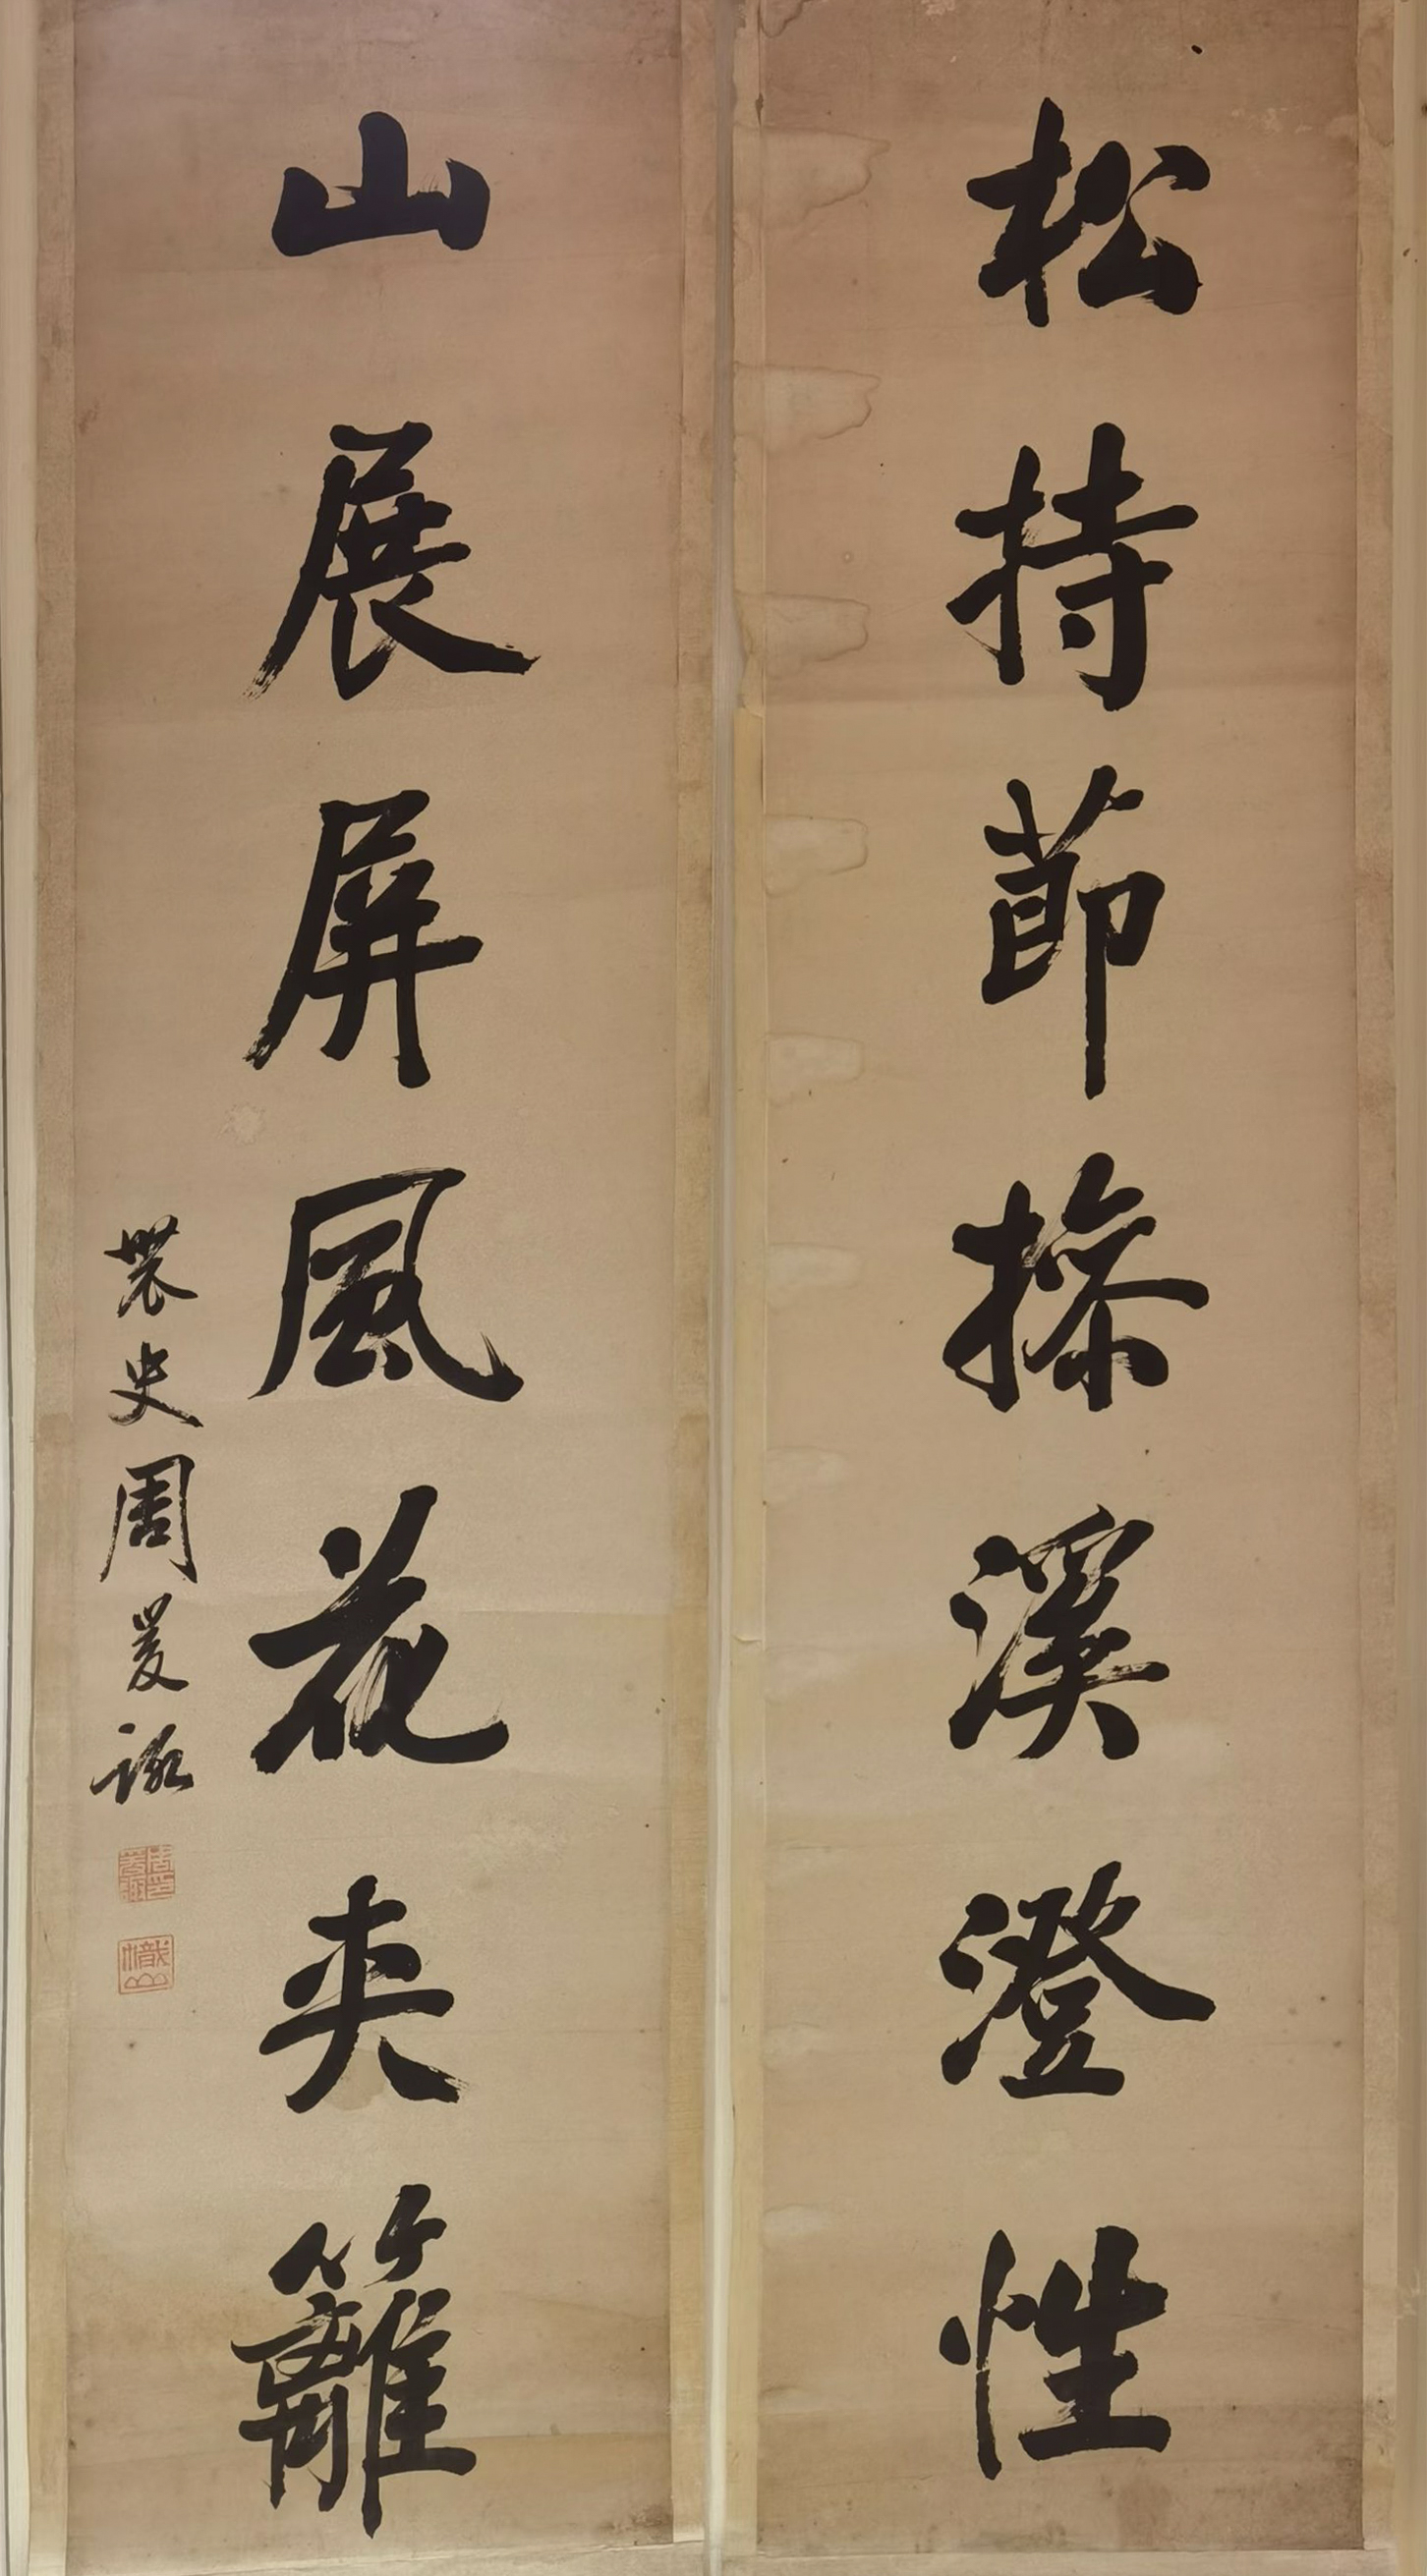 松持節操溪澄性
山展屏風花夾籬
農史周爰諏